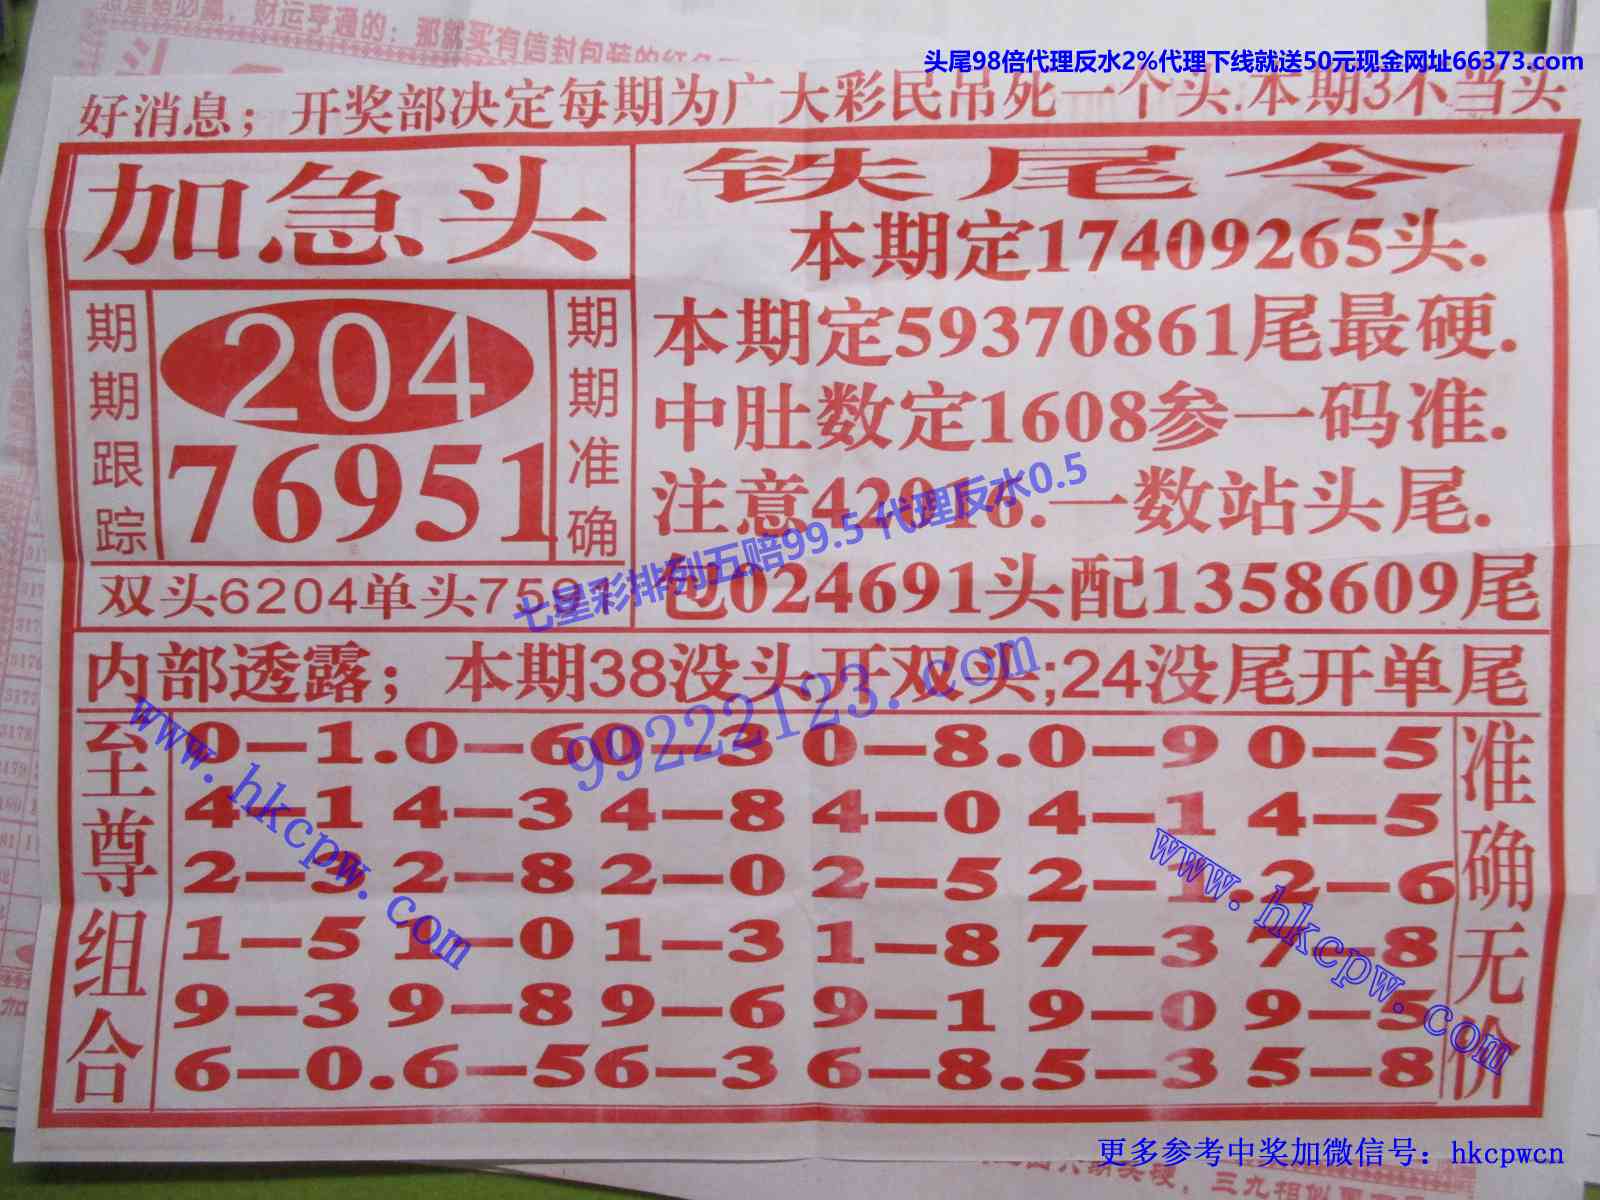 头尾98倍代理反水2%代理下线就送50元现金网址66373.com
好消息；开奖部决定每期为广大彩民吊死一个头.本期3不当头
加急头
期期跟踪
204
76951
期期准确
双头6204单头759
铁尾令
本期定17409265头.
本期定59370861尾最硬.
中肚数定1608参一码准.
注意42016.一数站头尾.
包024691头配1358609尾
七星彩排列五赔99.5代理反水0.5
内部透露；本期38没头开双头;24没尾开单尾
99222123.com
至尊组合
0–1.0–6 0–3 0–8.0–9 0–5
4–1 4–3 4–8 4–0 4–1 4–5
2–3 2–8 2–0 2–5 2–1.2–6
1–5 1–0 1–3 1–8 7–3 7–8
9–3 9–8 9–6 9–1 9–0 9–5
6–0.6–5 6–3 6–8.5–3 5–8
准确无价
www.hkcpw.com
www.hkcpw.com
更多参考中奖加微信号：hkcpwcn